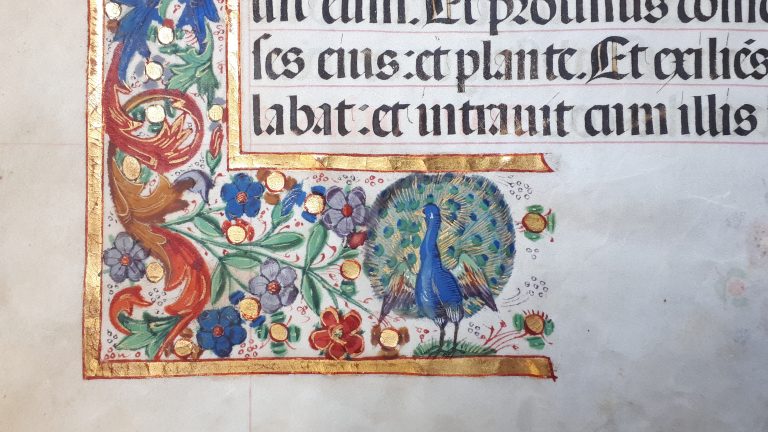 eum. Et protinus
ses eius: et plante. Et exilies
labat: et intrauit cum illis